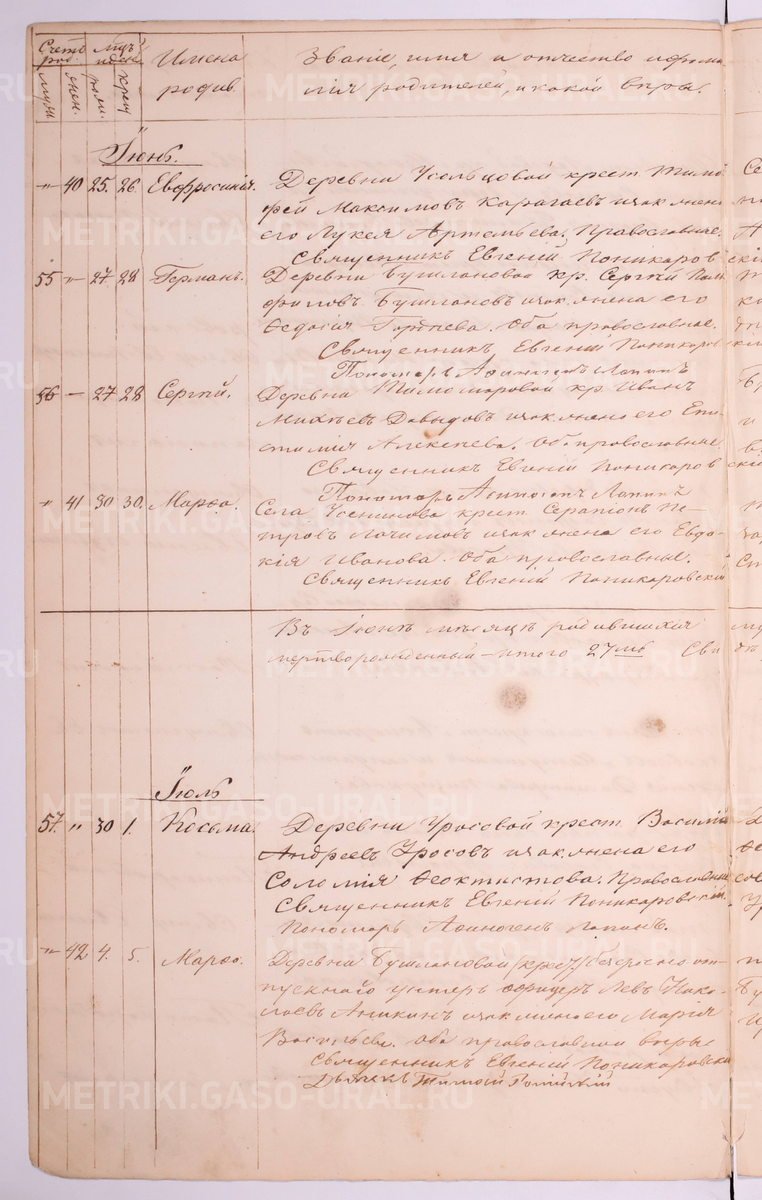 Счетъ род. Мцъ и день Имена Званіе, имя и отчество и фами-
муж. жен. рож. крещ. родив. лія родителей, и какой вѣры.
Іюнь.
" 40 25. 26. Евфросинія. Деревни Усольцовой крест. Тимо-
фей Максимовъ Карагаевъ и зак. жена
его Лукея Артемьева. Православные.
Священникъ Евгеній Поникаровскій
55 " 27. 28. Германъ. Деревни Бушлановой кр. Сергій Пам-
филовъ Бушлановъ и зак. жена его
Ѳедосія Гордѣева. Оба православные.
Священникъ Евгеній Поникаровскій
Пономарь Аѳиногенъ Лапинъ
56 — 27 28 Сергій. Деревни кр. Иванъ
Михѣевъ Давыдовъ и зак. жена его Епи-
стимія Алексѣева. Оба православные.
Священникъ Евгеній Поникаровскій
Пономарь Аѳиногенъ Лапинъ
" 41 30 30. Марѳа. Села крест. Серапіонъ Пе-
тровъ и зак. жена его Евдо-
кія Иванова. Оба православные.
Священникъ Евгеній Поникаровскій
Въ Іюнѣ мѣсяцѣ родившихся
мертворожденный — итого 27мь
Іюль
57. " 30 1. Косьма. Деревни Уросовой крест. Василій
Андреевъ Уросовъ и зак. жена его
Соломія Ѳеоктистова. Православные
Священникъ Евгеній Поникаровскій.
Пономарь Аѳиногенъ Лапинъ.
" 42 4. 5. Марѳа. Деревни Бушлановой (крест.) безсрочно от-
пускнаго унтеръ офицеръ Левъ Нико-
лаевъ Аникинъ и зак. жена его Марія
Васильева. Оба православной вѣры
Священникъ Евгеній Поникаровскій
Дьячекъ
METRIKI.GASO-URAL.RU